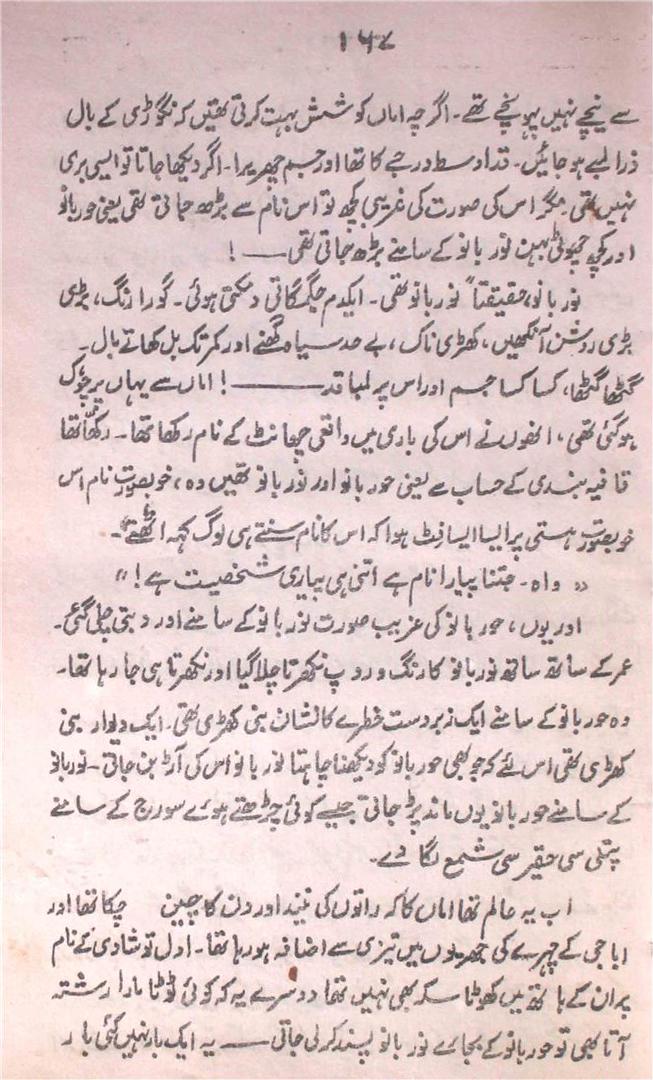 ۱۶۷
سے نیچے نہیں پہونچے تھے۔ اگرچہ اماں کوشش بہت کرتی تھیں کہ نگوڑی کے بال
ذرا لمبے ہو جائیں۔ قد اوسط درجے کا تھا اور جسم چھریرا۔ اگر دیکھا جاتا تو ایسی بری
نہیں تھی۔ مگر اس کی صورت کی غریبی کچھ تو اس نام سے بڑھ جاتی تھی یعنی حور بانو
اور کچھ چھوٹی بہن نور بانو کے سامنے بڑھ جاتی تھی ـــــ !
نور بانو، حقیقتاً نور بانو تھی۔ ایکدم جگمگاتی دمکتی ہوئی۔ گورا رنگ، بڑی
بڑی روشن آنکھیں، کھڑی ناک، بے حد سیاہ گھنے اور کمر تک بل کھاتے بال۔
گٹھا گٹھا، کسا کسا جسم اور اس پر لمبا قد ـــــــــ ! اماں سے یہاں پر چوک
ہو گئی تھی، انھوں نے اس کی باری میں واقعی چھانٹ کے نام رکھا تھا۔ رکھا تھا
قافیہ بندی کے حساب سے یعنی حور بانو اور نور بانو تھیں وہ، خوبصورت نام اس
خوبصورت ہستی پر ایسا ایسا فٹ ہوا کہ اس کا نام سنتے ہی لوگ کہہ اٹھتے۔
” واہ۔ جتنا پیارا نام ہے اتنی ہی پیاری شخصیت ہے ! “
اور یوں، حور بانو کی غریب صورت نور بانو کے سامنے اور دبتی چلی گئی۔
عمر کے ساتھ ساتھ نور بانو کا رنگ و روپ نکھرتا چلا گیا اور نکھرتا ہی جا رہا تھا۔
وہ حور بانو کے سامنے ایک زبردست خطرے کا نشان بنی کھڑی تھی۔ ایک دیوار بنی
کھڑی تھی اس لئے کہ جو بھی حور بانو کو دیکھنا چاہتا نور بانو اس کی آڑ بن جاتی۔ نور بانو
کے سامنے حور بانو یوں ماند پڑ جاتی جیسے کوئی چڑھتے ہوئے سورج کے سامنے
پتلی سی حقیر سی شمع لگا دے۔
اب یہ عالم تھا اماں کا کہ راتوں کی نیند اور دن کا چین چکا تھا اور
ابا جی کے چہرے کی جھریوں میں تیزی سے اضافہ ہو رہا تھا۔ اول تو شادی کے نام
پر ان کے ہاتھ میں کھوٹا سکہ بھی نہیں تھا دوسرے یہ کہ کوئی ٹوٹا مارا رشتہ
آتا بھی تو حور بانو کے بجائے نور بانو پسند کر لی جاتی ـــــ یہ ایک بار نہیں کئی بار